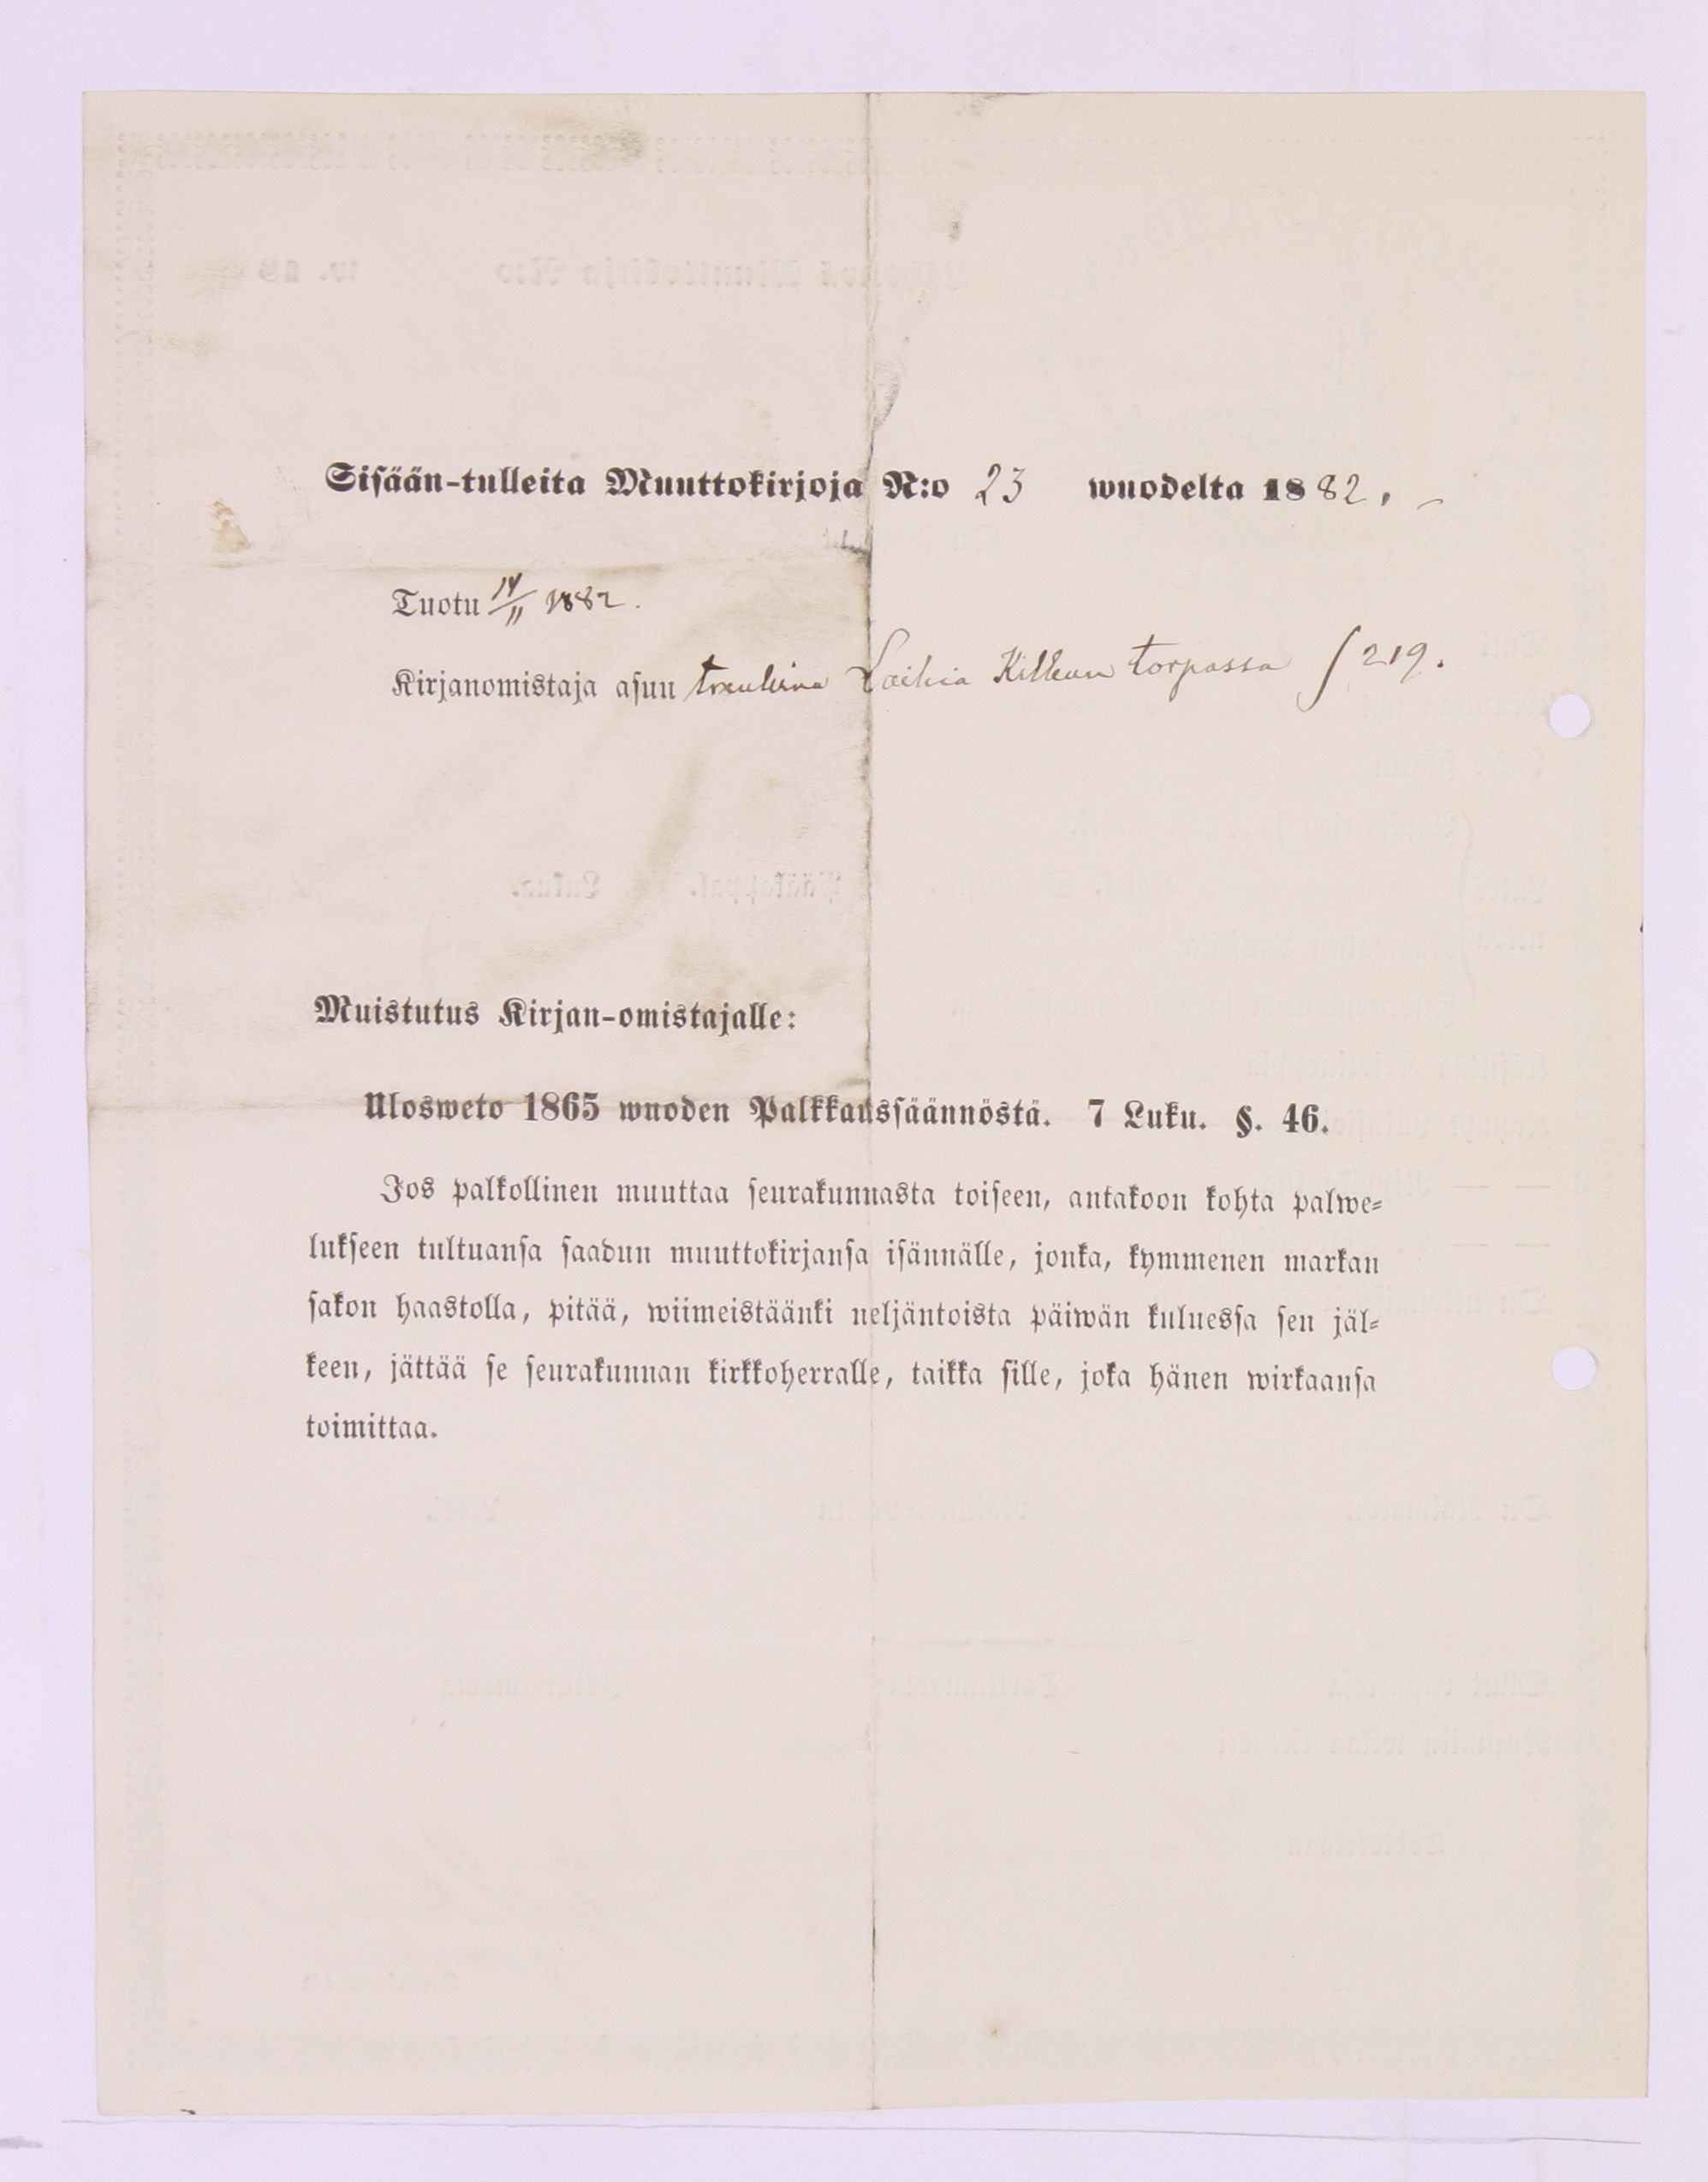 Sisään-tulleita Muuttokirjoja N:o 23 wuodelta 1882.
Tuotu 14/11 1882.
Kirjanomistaja asuu Laihia torpassa 219.
Muistutus Kirjan-omistajalle:
Ulosweto 1865 wuoden Palkkaussäännöstä. 7 Luku. §. 46.
Jos palkollinen muuttaa seurakunnasta toiseen, antakoon kohta palwe-
lukseen tultuansa saadun muuttokirjansa isännälle, jonka, kymmenen markan
sakon haastolla, pitää, wiimeistäänki neljäntoista päiwän kuluessa sen jäl-
keen, jättää se seurakunnan kirkkoherralle, taikka sille, joka hänen wirkaansa
toimittaa.